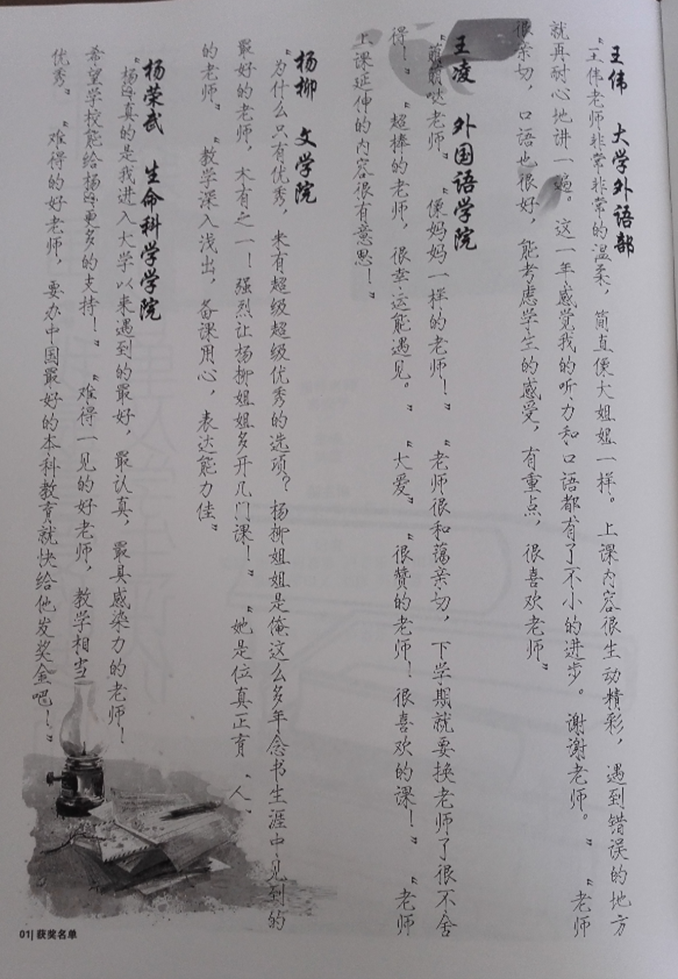 王伟 大学外语部
“王伟老师非常非常的温柔，简直像大姐姐一样。上课内容很生动精彩，遇到错误的地方
就再耐心地讲一遍。这一年感觉我的听力和口语都有了不小的进步。谢谢老师。”“老师
很亲切，口语也很好，能考虑学生的感受，有重点，很喜欢老师”
王凌 外国语学院
“萌萌哒老师”“像妈妈一样的老师！”“老师很和蔼亲切，下学期就要换老师了很不舍
得！”“超棒的老师，很幸运能遇见。”“大爱”“很赞的老师！很喜欢的课！”“老师
上课延伸的内容很有意思！”
杨柳 文学院
“为什么只有优秀，来有超级超级优秀的选项？杨柳姐姐是俺这么多年念书生涯中见到的
最好的老师，木有之一！强烈让杨柳姐姐多开几门课！”“她是位真正育‘人’
的老师”“教学深入浅出，备课用心，表达能力佳”
杨荣武 生命科学学院
“杨sir真的是我进入大学以来遇到的最好，最认真，最具感染力的老师！
希望学校能给杨sir更多的支持！”“难得一见的好老师，教学相当
优秀”“难得的好老师，要办中国最好的本科教育就快给他发奖金吧！”
01| 获奖名单